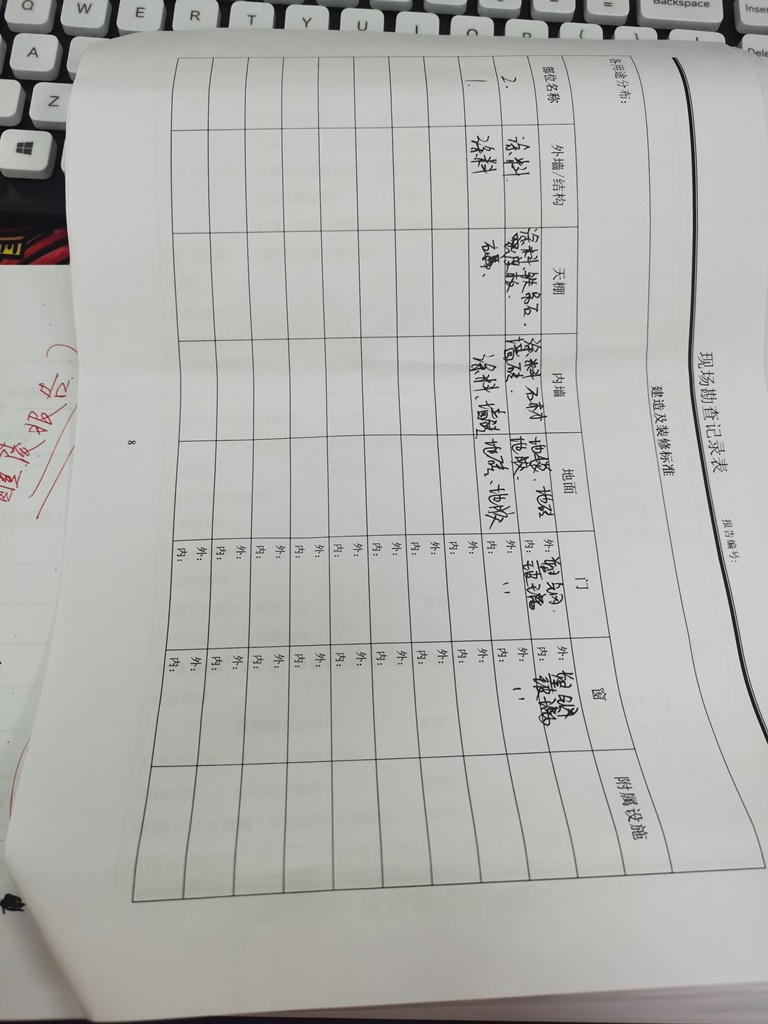 现场勘查记录表
报告编号:
建造及装修标准
各用途分布:
部位名称 外墙/结构 天棚 内墙 地面 门 窗 附属设施
2. 涂料. 涂料. 涂料 石材 地毯、地砖 外: 塑钢. 外: 塑钢
墙砖. 地胶. 内: 玻璃 内: 玻璃
1. 涂料 涂料、墙砖 地砖、地胶 外: 〃 外: 〃
内: 内:
外: 外:
内: 内:
外: 外:
内: 内:
外: 外:
内: 内:
外: 外:
内: 内:
外: 外:
内: 内:
外: 外:
内: 内:
外: 外:
内: 内:
外: 外:
内: 内:
8
Q W E R T Y U
Backspace
A
Z